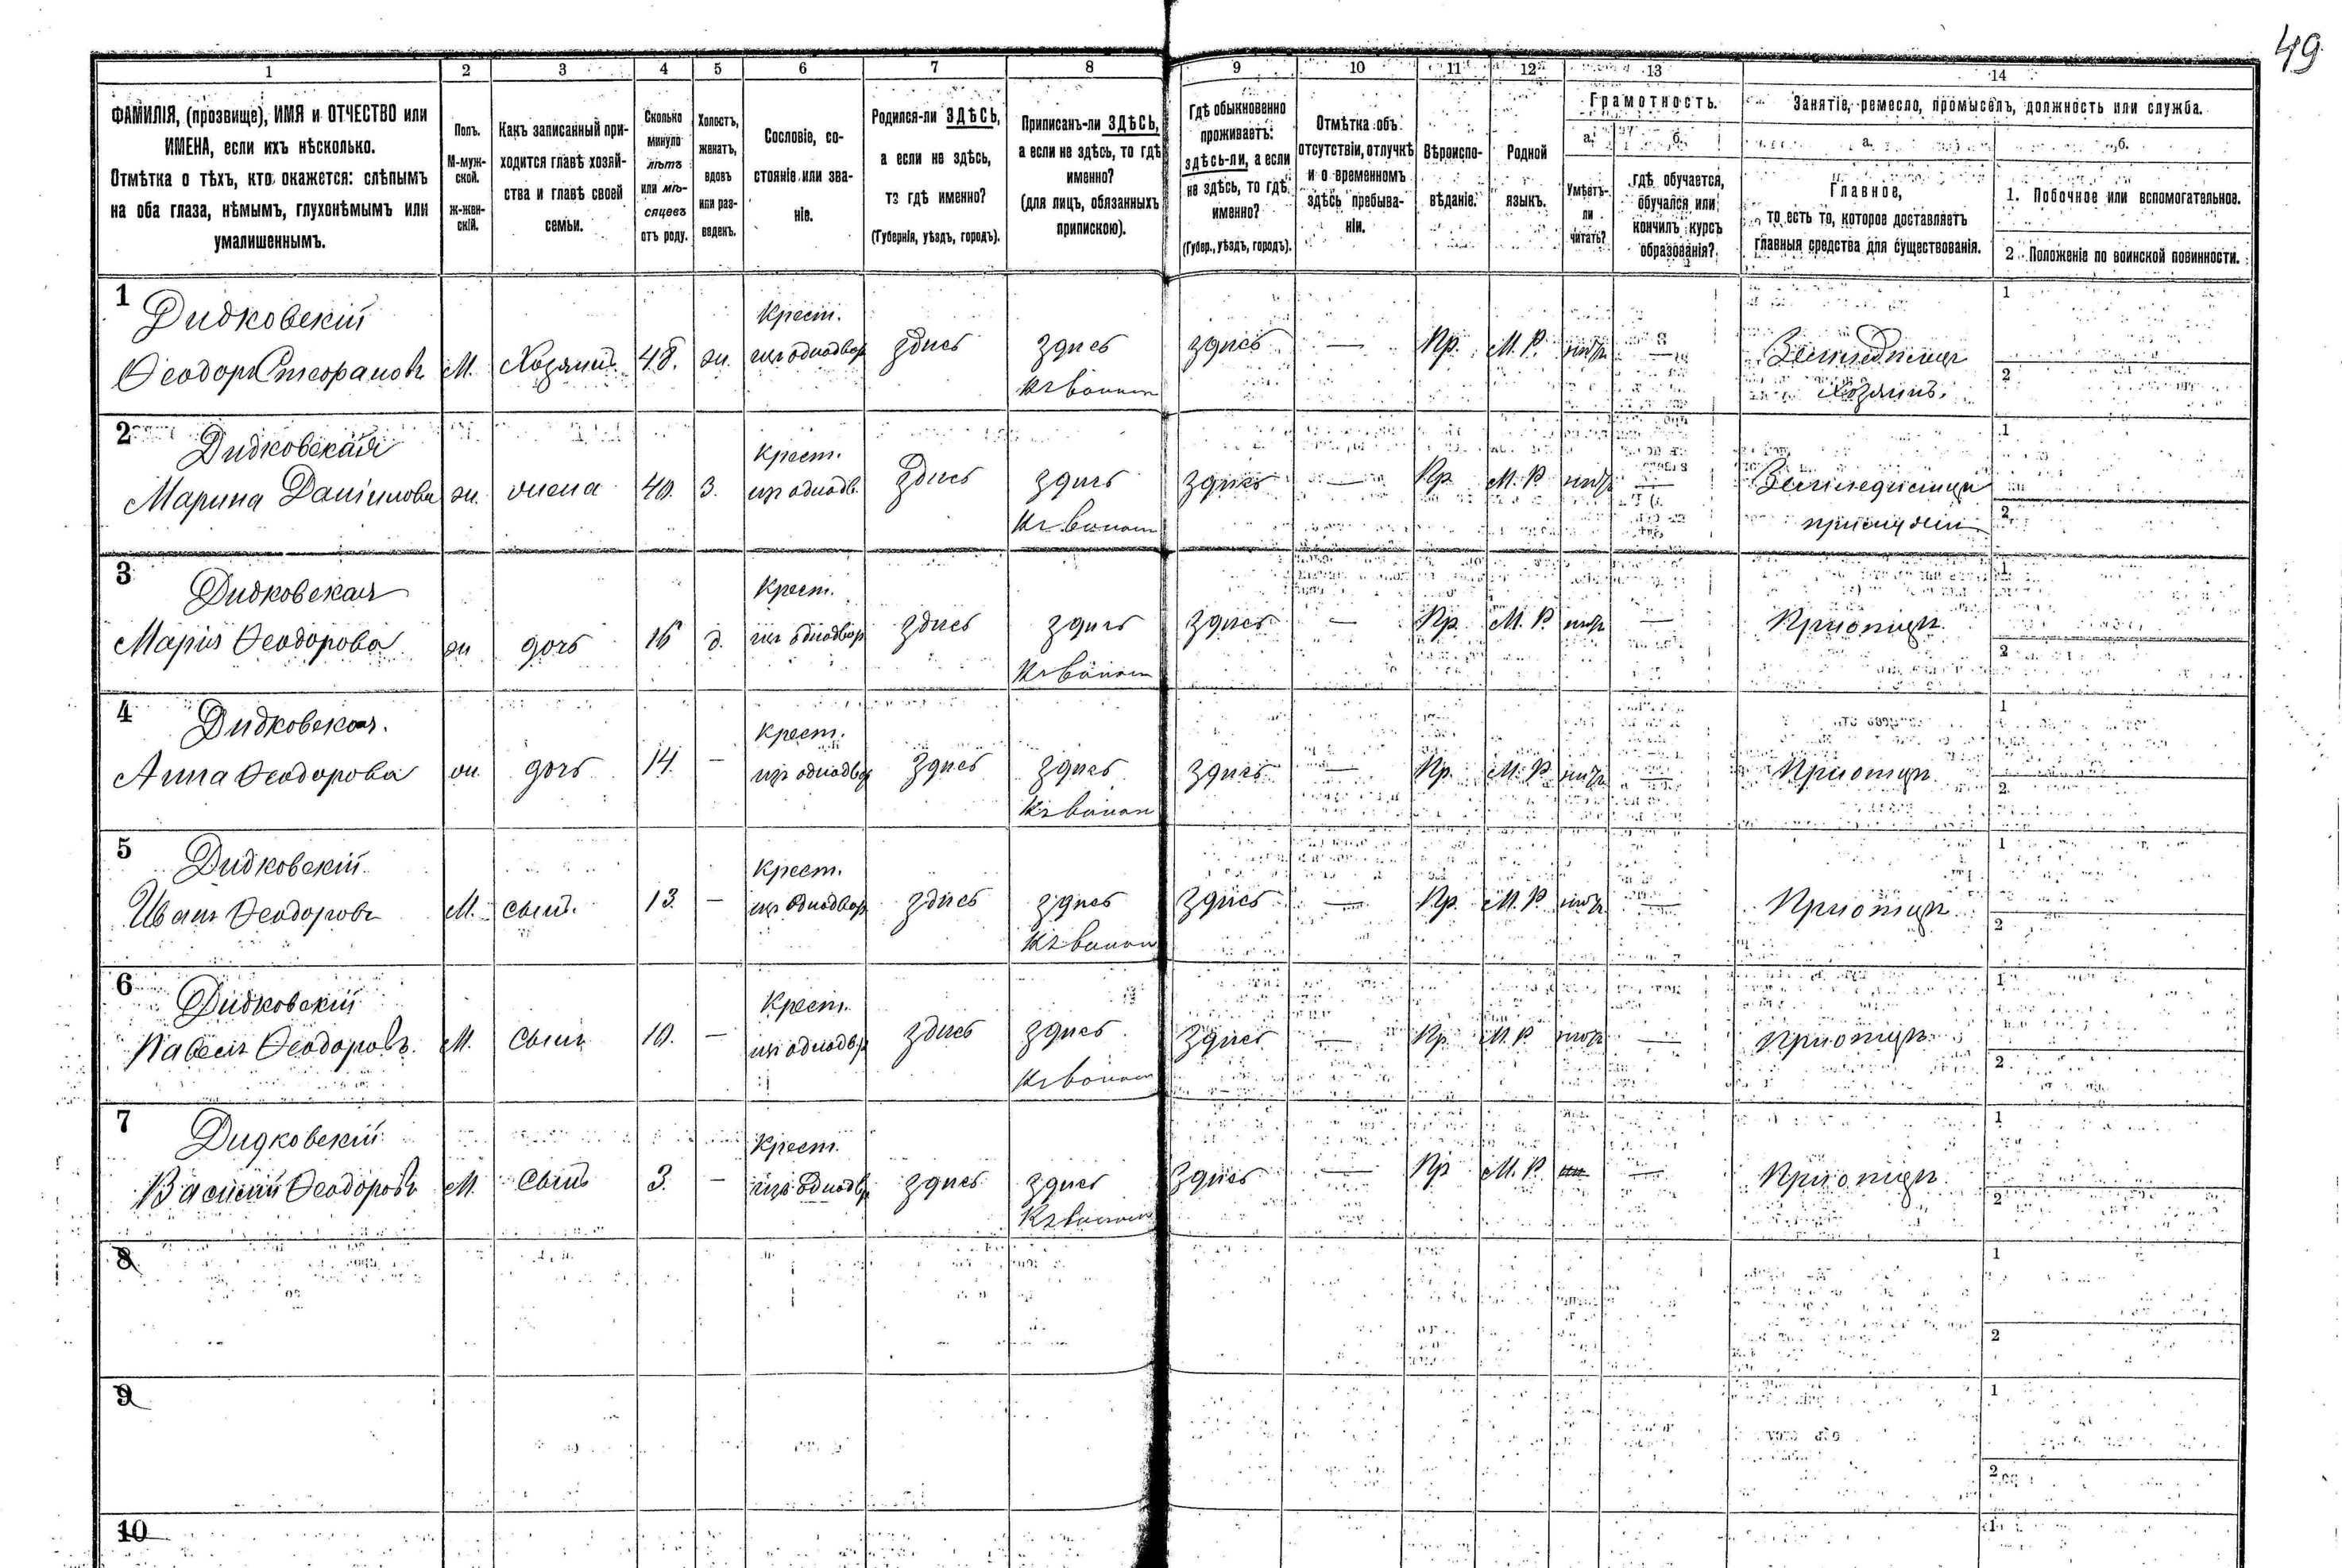 49
1 2 3 4 5 6 7 8 9 10 11 12 13 14
ФАМИЛІЯ, (прозвище), ИМЯ и ОТЧЕСТВО или
ИМЕНА, если ихъ нѣсколько.
Отмѣтка о тѣхъ, кто окажется: слѣпымъ
на оба глаза, нѣмымъ, глухонѣмымъ или
умалишеннымъ.
Полъ.
М-муж-
ской.
Ж-жен-
скій.
Какъ записанный при-
ходится главѣ хозяй-
ства и главѣ своей
семьи.
Сколько
минуло
лѣтъ
или мѣ-
сяцевъ
отъ роду.
Холостъ,
женатъ,
вдовъ
или раз-
веденъ.
Сословіе, со-
стояніе или зва-
ніе.
Родился-ли ЗДѢСЬ,
а если не здѣсь,
то гдѣ именно?
(Губернія, уѣздъ, городъ).
Приписанъ-ли ЗДѢСЬ,
а если не здѣсь, то гдѣ
именно?
(для лицъ, обязанныхъ
припискою).
Гдѣ обыкновенно
проживаетъ:
здѣсь-ли, а если
не здѣсь, то гдѣ
именно?
(Губер., уѣздъ, городъ).
Отмѣтка объ
отсутствіи, отлучкѣ
и о временномъ
здѣсь пребыва-
ніи.
Вѣроиспо-
вѣданіе.
Родной
языкъ.
Грамотность.
а.
Умѣетъ-
ли
читать?
б.
гдѣ обучается,
обучался или
кончилъ курсъ
образованія?
Занятіе, ремесло, промыселъ, должность или служба.
а.
Главное,
то есть то, которое доставляетъ
главныя средства для существованія.
б.
1. Побочное или вспомогательное.
2. Положеніе по воинской повинности.
1
Дидковскій
Ѳеодоръ Стефановъ М. Хозяинъ 48. ж.
Крест.
изъ однодвор здѣсь здѣсь
здѣсь — Пр. М. Р. нѣтъ —
Земледѣлецъ
хозяинъ.
1
2
2
Дидковская
Марина Даніилова ж. жена 40. З.
Крест.
изъ однодв. здѣсь здѣсь
здѣсь — Пр. М. Р. нѣтъ —
1
2
3
Дидковская
Марія Ѳеодорова ж дочь 16 д.
Крест.
изъ однодвор здѣсь здѣсь
здѣсь — Пр. М. Р. нѣтъ —
1
2
4
Дидковская.
Анна Ѳеодорова ж. дочь 14 —
Крест.
изъ однодво здѣсь здѣсь
здѣсь — Пр. М. Р. нѣтъ —
1
2
5
Дидковскій
Иванъ Ѳеодоровъ М. сынъ. 13 —
Крест.
изъ однодвор здѣсь здѣсь
здѣсь — Пр. М. Р. нѣтъ —
1
2
6
Дидковскій
Павелъ Ѳеодоровъ. М. Сынъ 10. —
Крест.
изъ однодвр здѣсь здѣсь
здѣсь — Пр. М. Р. нѣтъ —
1
2
7
Дидковскій
Василій Ѳеодоровъ М. Сынъ 3. —
Крест.
изъ однодв здѣсь здѣсь
здѣсь — Пр М. Р. —
1
2
8
1
2
9
1
2
10
1